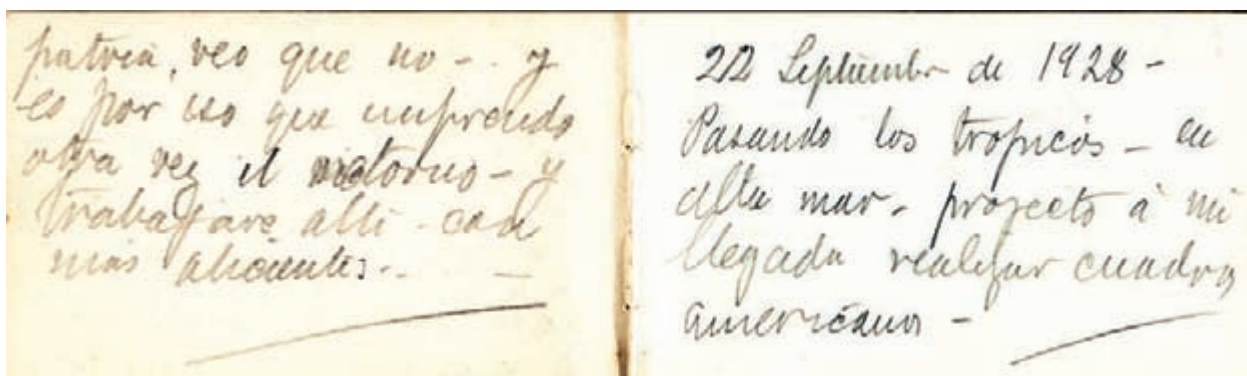 patria, veo que no - . y
es por eso que emprendo
otra vez el retorno - y
trabajare alli - con
mas alicientes. - -
22 Septiembre de 1928 -
Pasando los tropicos - en
alta mar - proyecto á mi
llegada realizar cuadros
americanos -